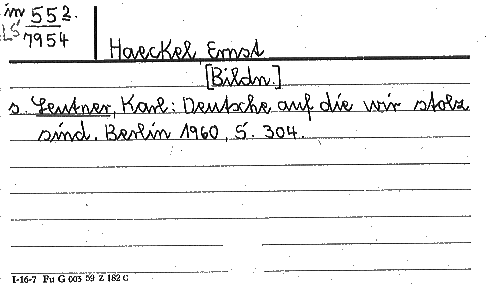 in 552.
LS 7954
Haeckel Ernst
[Bildn.]
s. Leutner, Karl: Deutsche, auf die wir stolz
sind. Berlin 1960, S. 304.
I-16-7 Fu G 003 59 Z 182 C